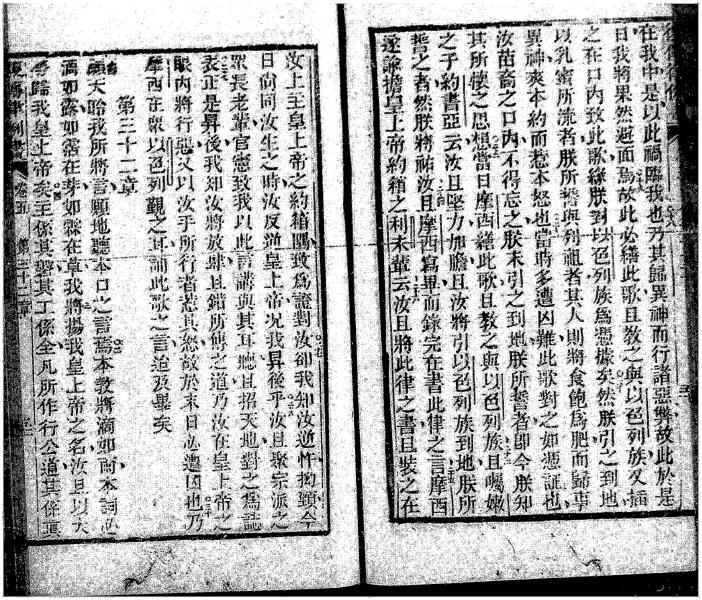 在我中是以此禍臨我也乃其歸異神而行諸惡弊故此於是
日我將果然避面焉故此必繕此歌且教之與以色列族又插
之在口內致此歌緣朕對以色列族為憑據矣然朕引之到地
以乳蜜所流者朕所誓與列祖者其人則將食飽為肥而歸事
異神爽本約而惹本怒也當時多遭凶難此歌對之如憑証也
汝苗裔之口內不得忘之朕未引之到地朕所誓者即今朕知
其所懷之思想當日摩西繕此歌且教之與以色列族且囑嫩
之子約書亞云汝且堅力加膽且汝將引以色列族到地朕所
誓之者然朕將祐汝且摩西寫畢而錄完在書此律之言摩西
遂諭擔皇上帝約箱之利未輩云汝且將此律之書且裝之在
汝上主皇上帝之約箱隅致為證對汝卻我知汝逆忤拗頸今
日尚同汝生之時汝反逆皇上帝況我昇後乎汝且聚宗派之
眾長老輩官憲致我以此言講與其耳聽且招天地對之為誌
衷正是昇後我知汝將放肆且錯所傳之道乃汝在皇上帝之
眼內將行惡又以汝手所行者惹其怒故於末日必遭凶也乃
摩西在眾以色列覲之耳誦此歌之言迨及畢矣
第三十二章
天聆我所將言願地聽本口之言焉本教將滴如雨本詞
滴如露如霈在芽如霖在草我將揚我皇上帝之名汝且以大
歸我皇上帝矣主係其磐其工係全凡所作行公道其係真
卷五 第三十二章